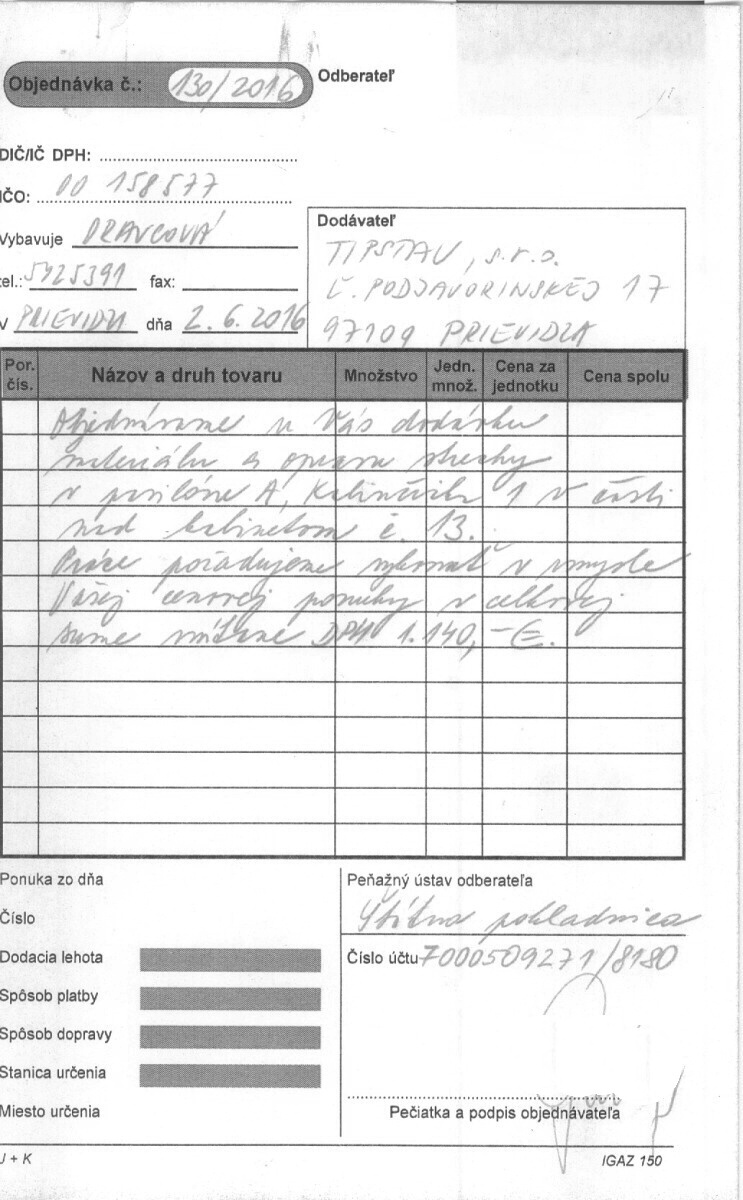 Objednávka č.: 130/2016
Odberateľ
DIČ/IČ DPH:
IČO: 00 158577
Vybavuje PRAVCOVÁ
tel.: 5425391 fax:
V PRIEVIDZA dňa 2.6.2016
Dodávateľ
TIPSTAV, s.r.o.
Ľ. PODJAVORINSKEJ 17
97109 PRIEVIDZA
Por. čís. Názov a druh tovaru Množstvo Jedn. množ. Cena za jednotku Cena spolu
Objednávame u Vás dodávku
materiálu a opravu strechy
v pavilóne A, Kalinčiaka 1 v časti
nad kabinetom č. 13.
Práce požadujeme vykonať v zmysle
Vašej cenovej ponuky v celkovej
sume vrátane DPH 1.140,-€.
Ponuka zo dňa
Číslo
Dodacia lehota
Spôsob platby
Spôsob dopravy
Stanica určenia
Miesto určenia
Peňažný ústav odberateľa
Štátna pokladnica
Číslo účtu 7000509271/8180
Pečiatka a podpis objednávateľa
J + K
IGAZ 150